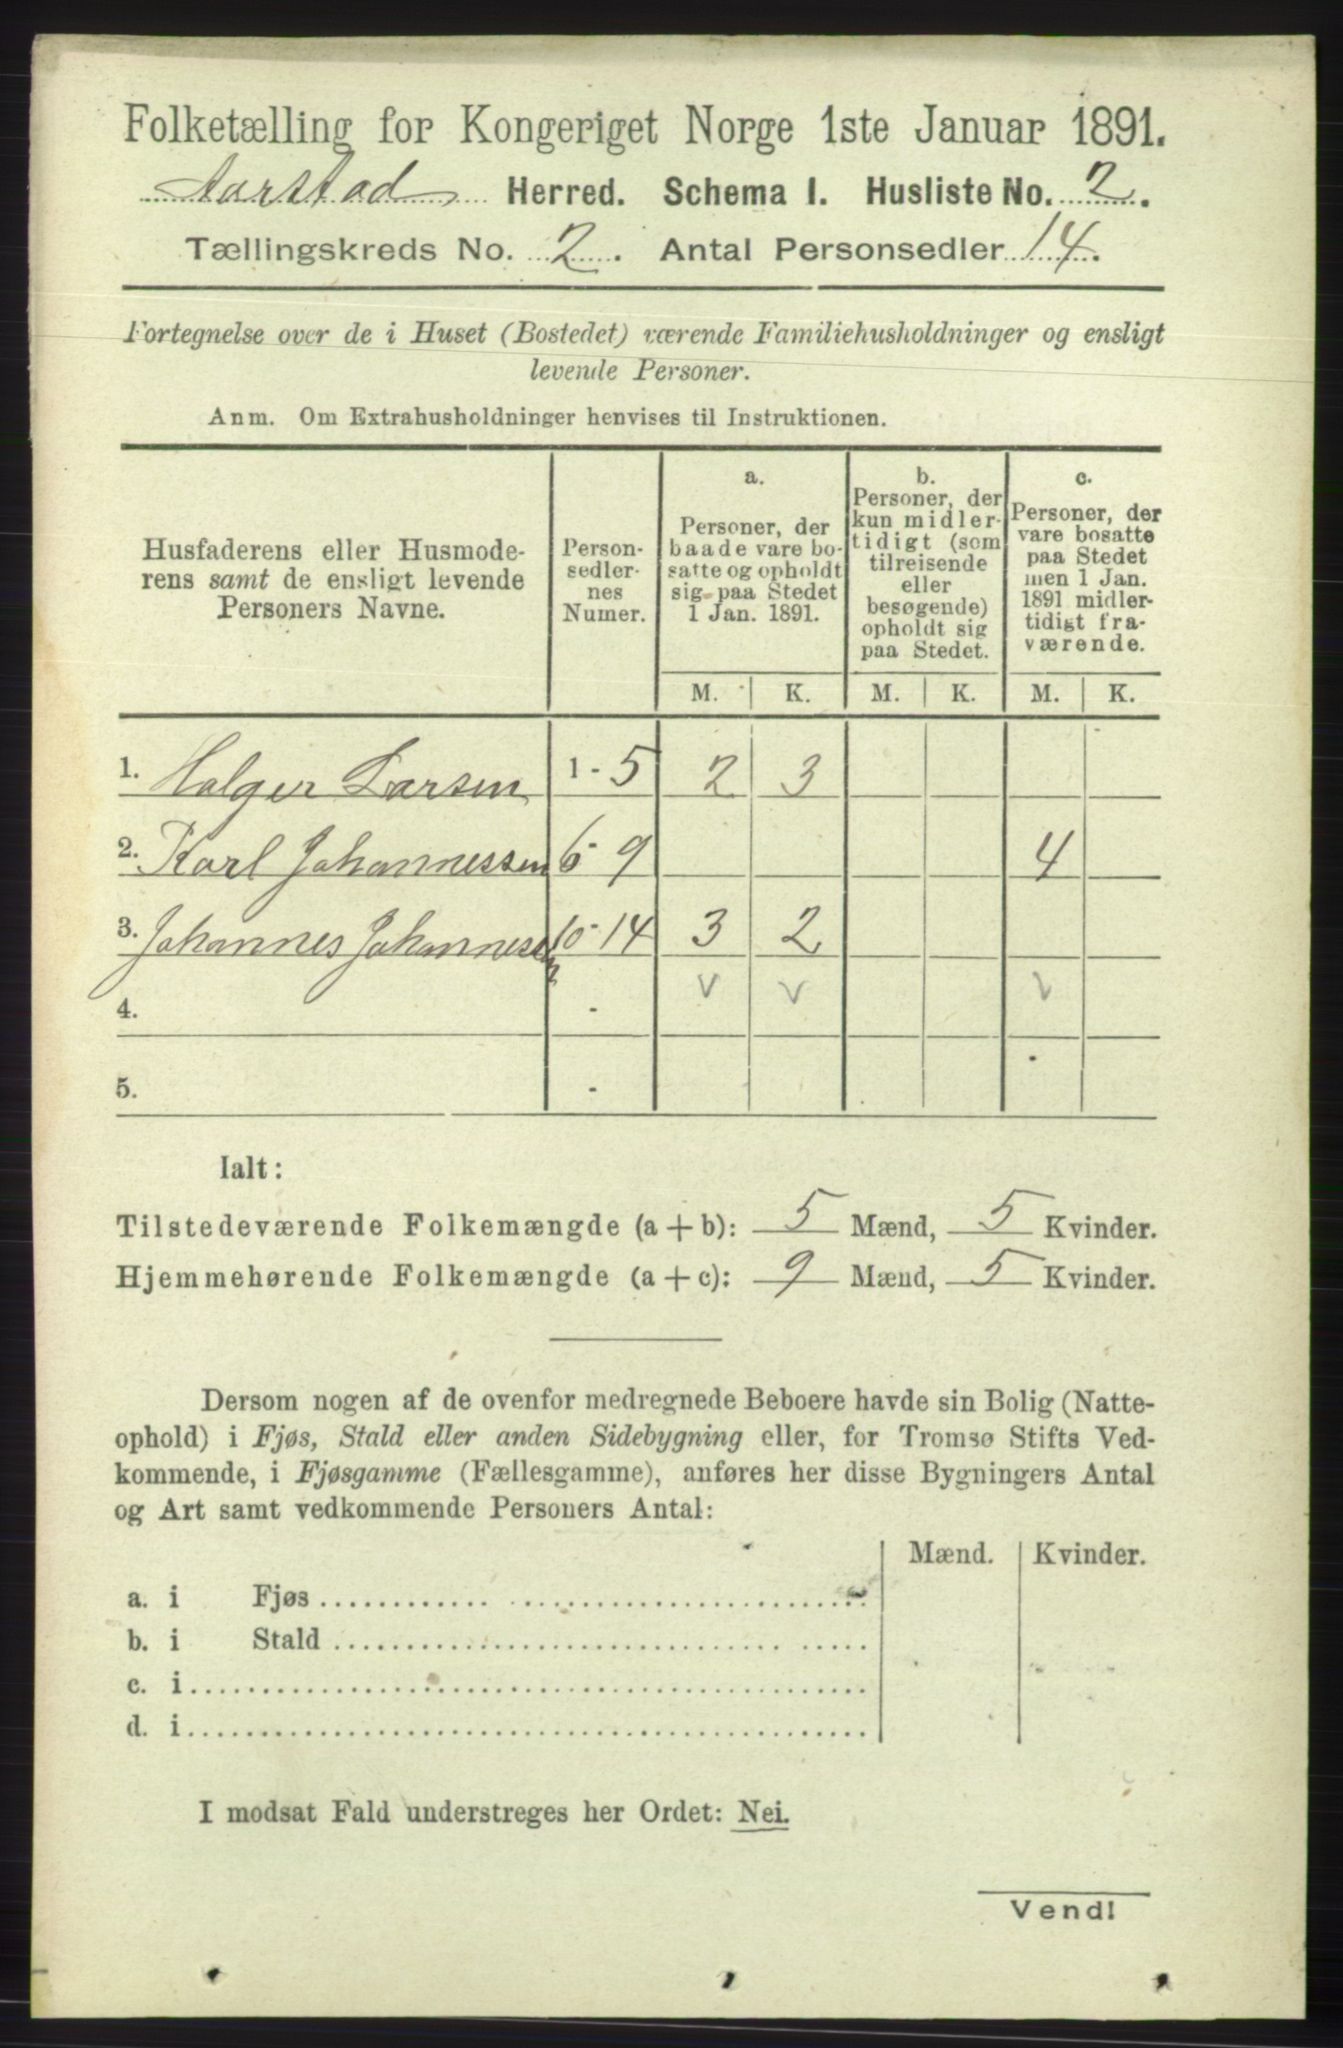 Folketælling for Kongeriget Norge 1ste Januar 1891.
Aarstad Herred. Schema I. Husliste No. 2.
Tællingskreds No. 2. Antal Personsedler 14.
Fortegnelse over de i Huset (Bostedet) værende Familiehusholdninger og ensligt
levende Personer.
Anm. Om Extrahusholdninger henvises til Instruktionen.
Husfaderens eller Husmode-
rens samt de ensligt levende
Personers Navne.
Person-
sedler-
nes
Numer.
a.
Personer, der
baade vare bo-
satte og opholdt
sig paa Stedet
1 Jan. 1891.
b.
Personer, der
kun midler-
tidigt (som
tilreisende
eller
besøgende)
opholdt sig
paa Stedet.
c.
Personer, der
vare bosatte
paa Stedet
men 1 Jan.
1891 midler-
tidigt fra-
værende.
M. K. M. K. M. K.
1. Holger Larsen 1 - 5 2 3
2. Karl Johannessen 6 - 9 4
3. Johannes Johannessen 10 - 14 3 2
4. - v v v
5. -
Ialt:
Tilstedeværende Folkemængde (a + b): 5 Mænd, 5 Kvinder.
Hjemmehørende Folkemængde (a + c): 9 Mænd, 5 Kvinder.
Dersom nogen af de ovenfor medregnede Beboere havde sin Bolig (Natte-
ophold) i Fjøs, Stald eller anden Sidebygning eller, for Tromsø Stifts Ved-
kommende, i Fjøsgamme (Fællesgamme), anføres her disse Bygningers Antal
og Art samt vedkommende Personers Antal:
Mænd. Kvinder.
a. i Fjøs
b. i Stald
c. i
d. i
I modsat Fald understreges her Ordet: Nei.
Vend!